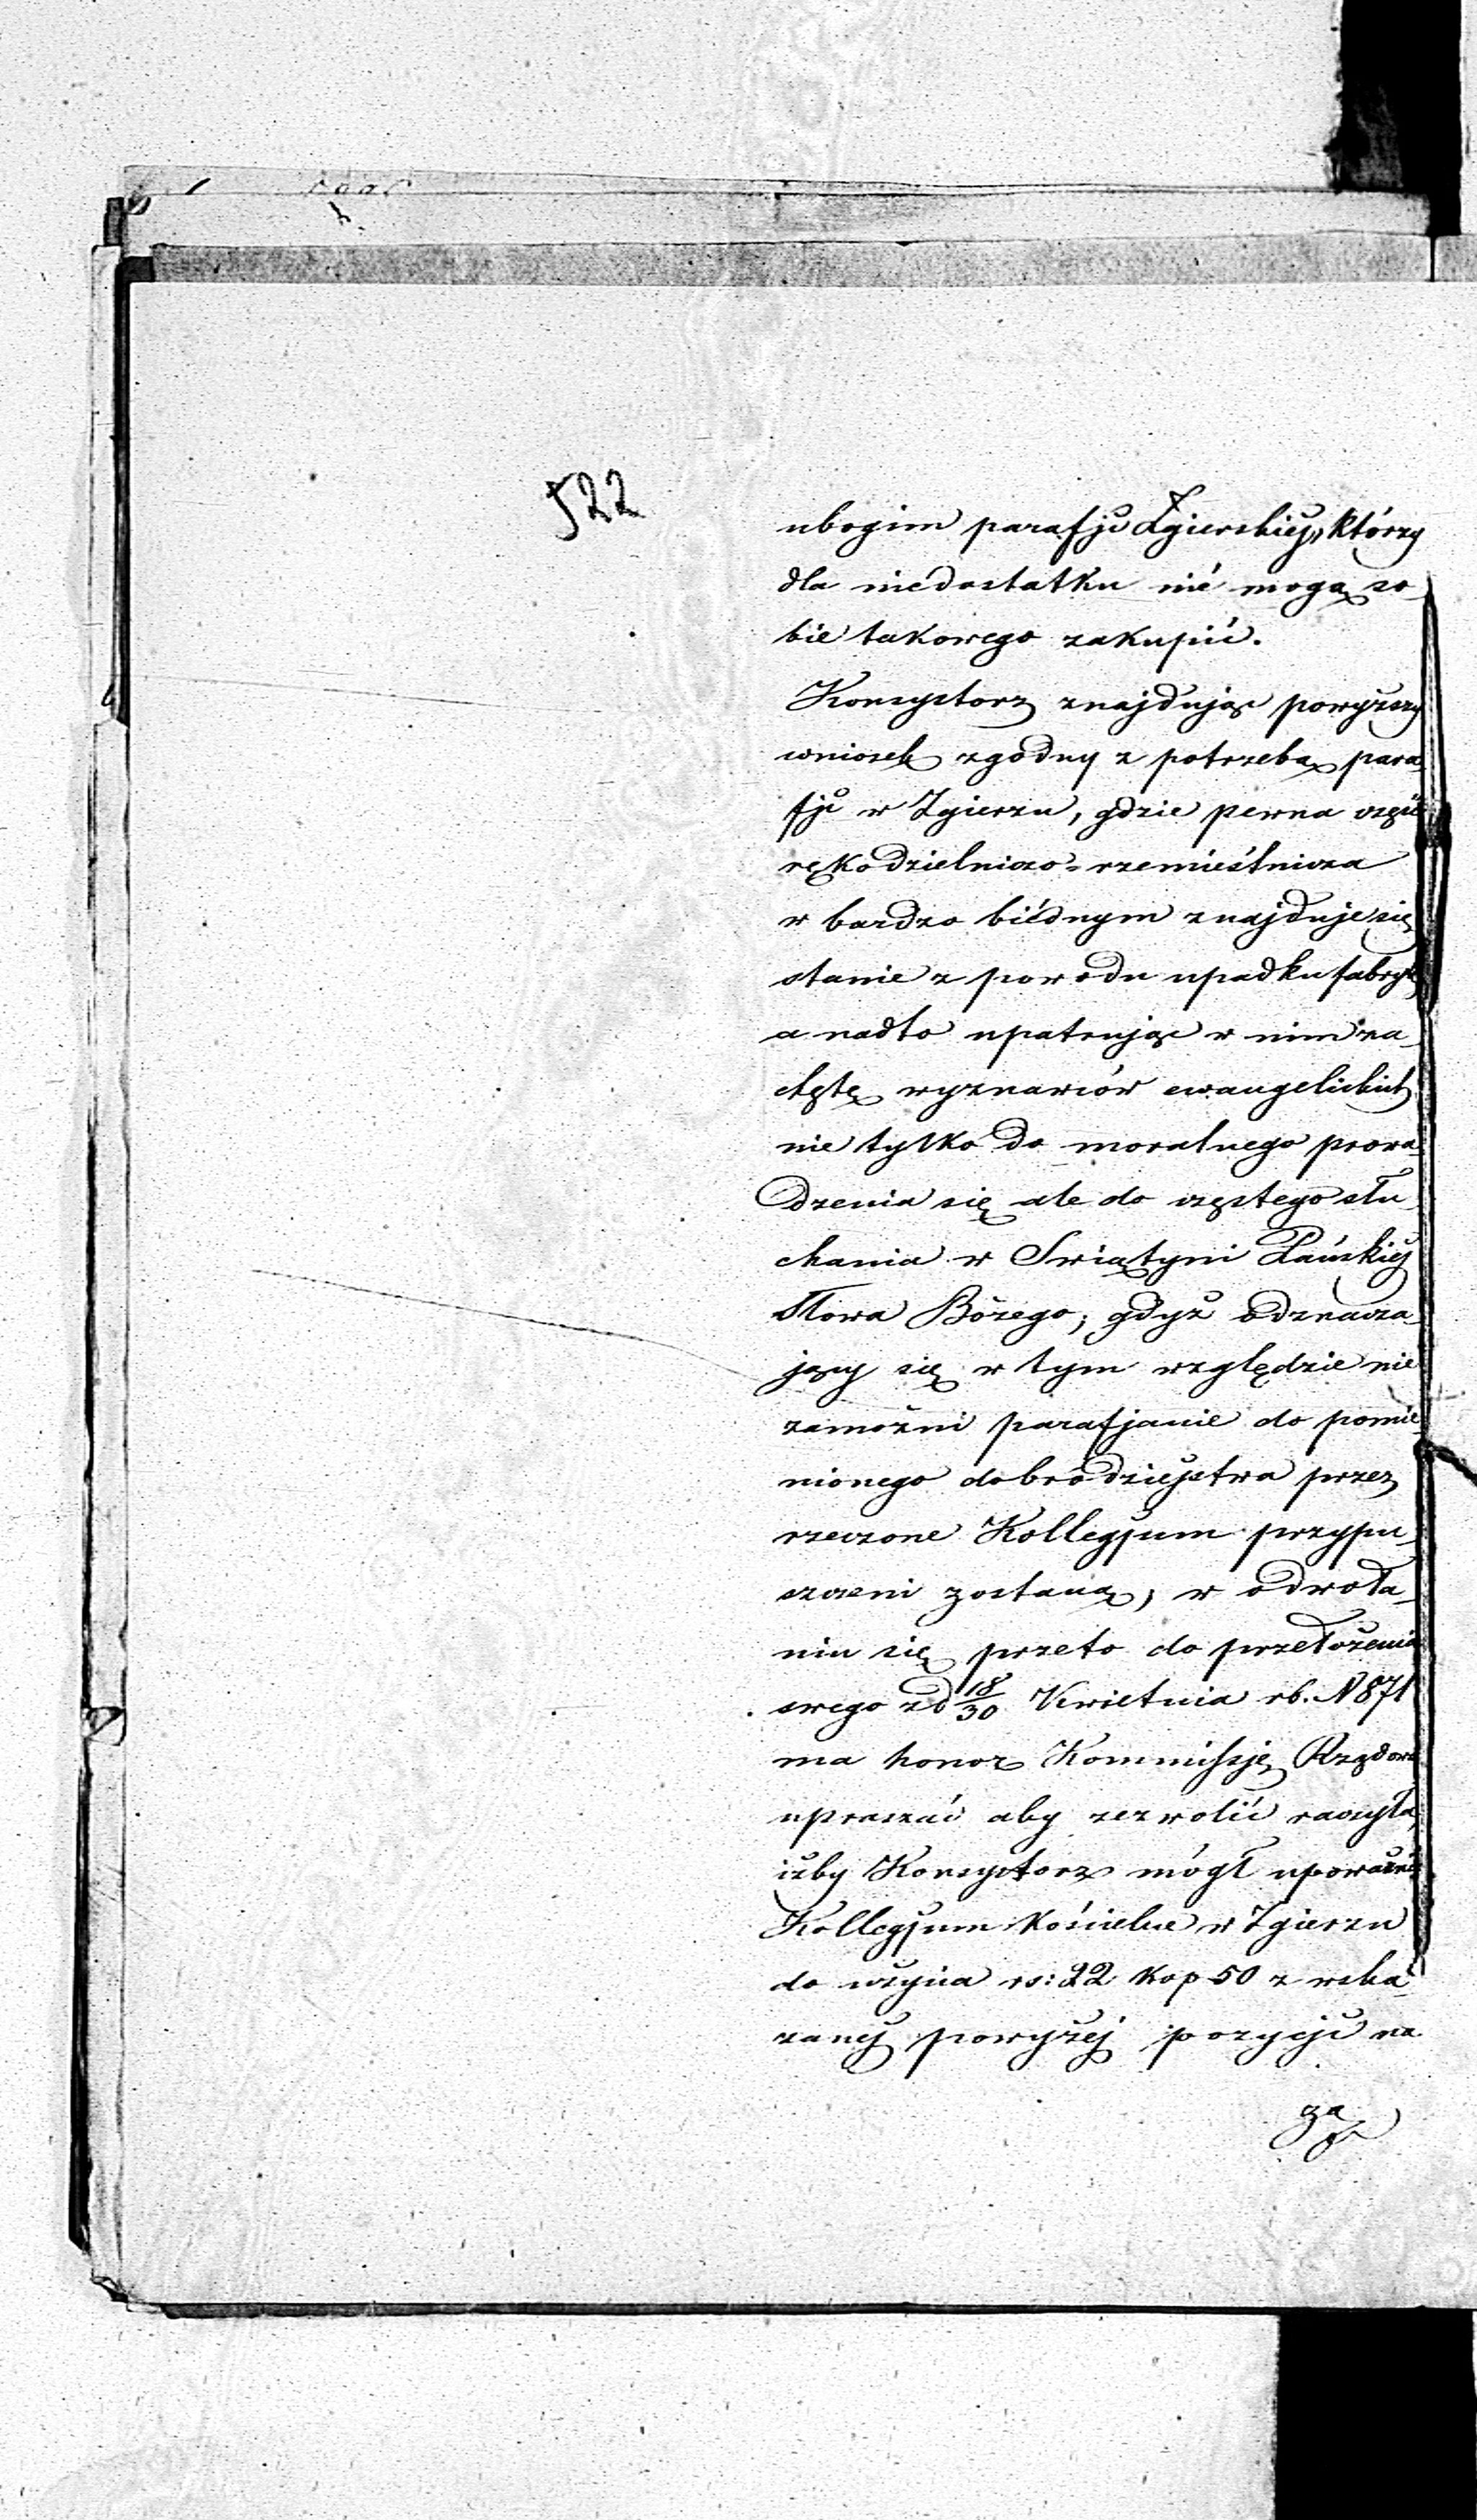 522
ubogim parafji Zgierskiej, którzy
dla niedostatku nié mogą so-
bie takowego zakupić.
Konsystorz znajdując powyższy
wniosek zgodny z potrzebą para-
fji w Zgierzu, gdzie pewna część
rękodzielniczo-rzemieślnicza
w bardzo biédnym znajduje się
stanie z powodu upadku fabryk
a nadto upatrując w nim za-
chętę wyznawców ewangelickich
nie tylko do moralnego prowa-
dzenia się ale do częstego słu-
chania w Swiątyni Pańskiej
Słowa Bożego; gdyż odznacza-
jący się w tym względzie nie
zamożni parafjanie do pomie-
nionego dobrodziejstwa przez
rzeczone Kollegjum przypu-
szczeni zostaną, w odwoła-
niu się przeto do przełożenia
swego z d 18/30 Kwietnia rb. N 871
ma honor Kommissję Rządową
upraszać aby zezwolić raczyła,
iżby Konsystorz mógł upoważnić
Kollegjum Kościelne w Zgierzu
do użycia rs: 22 kop 50 z wska-
zanej powyżej pozycji na
za